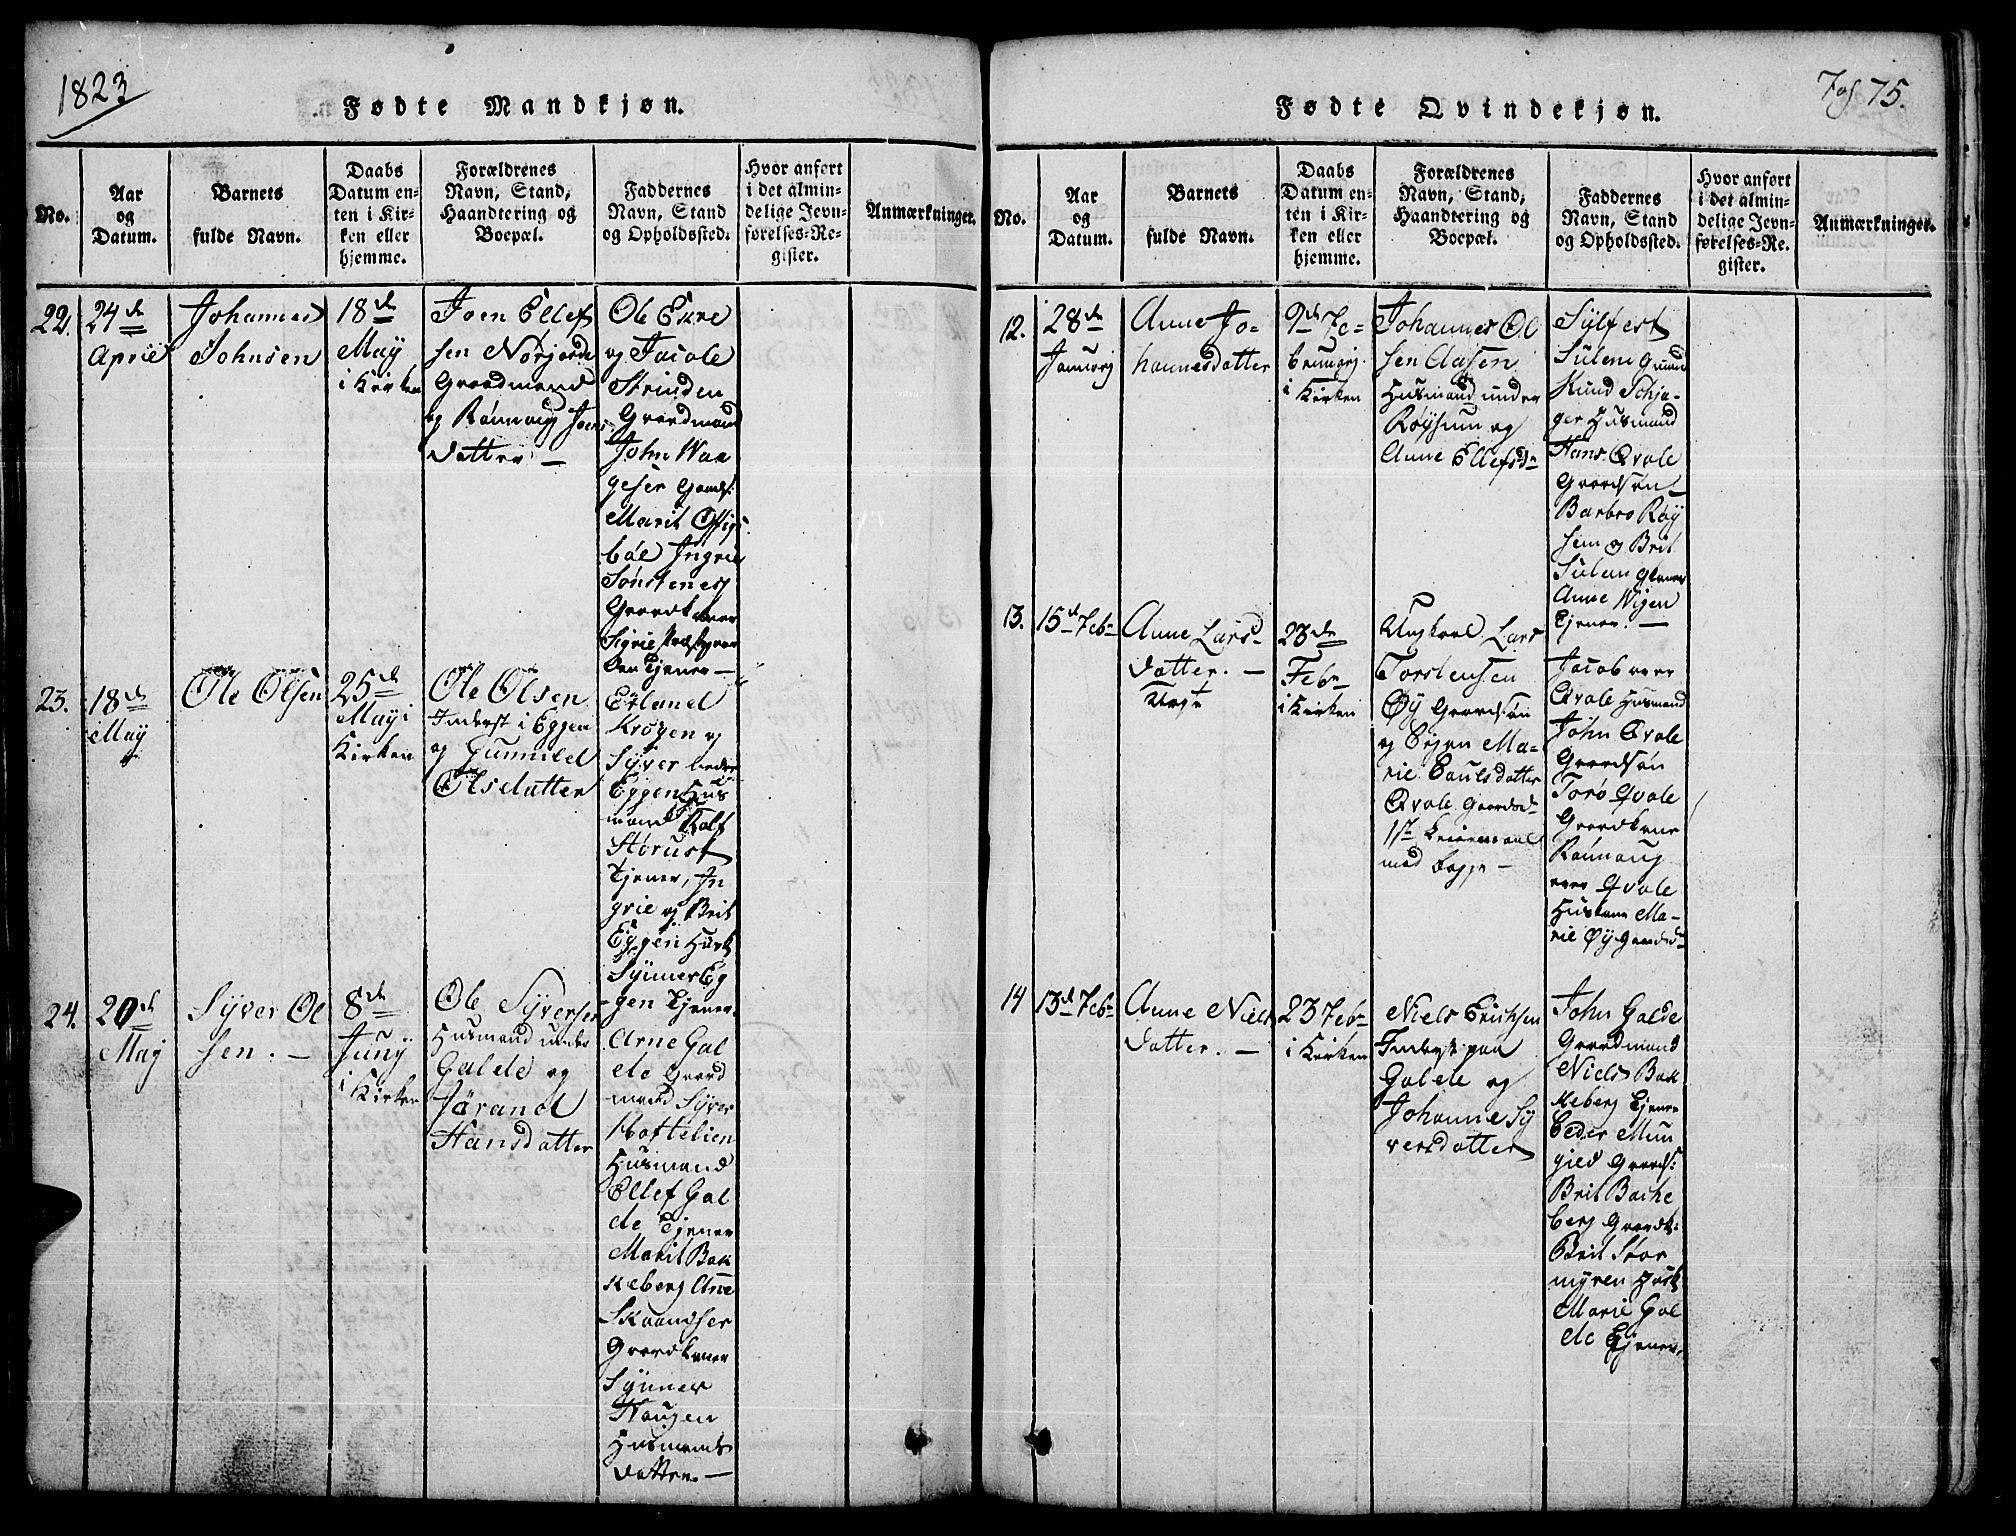 1823
Fødte Mandkjøn.
No.
Aar
og
Datum.
Barnets
fulde Navn.
Daabs
Datum en-
ten i Kir-
ken eller
hjemme.
Forældrenes
Navn, Stand,
Haandtering og
Boepæl.
Faddernes
Navn, Stand
og Opholdssted.
Hvor anført
i det almin-
delige Jevn-
førelses-Re-
gister.
Anmærkninger.
22.
24de
April
Johannes
Johnsen
18de
May
i Kirken
Joen Ellef
sen
Gaardmand
og Rønnaug Joens
datter —
Ole Ekre
og Jacob
Strinden
Gaardmænd
John Waa
geser Gaards:
Marit
bøe Ingrie
Sønstenes
Gaardkoner
Sigrie
Tjener —
23.
18de
May
Ole Olsen
25de
May i
Kirken
Ole Olsen
Inderst i Eggen
og Gunnild
Olsdatter
Erland
Krogen og
Syver
Eggen Hus
mænd Rolf
Storust
Tjener, In
grie og Brit
Eggen Husk
Synner Eg
gen Tjener
24.
20de
May
Syver Ol
sen. —
8de
Juny
i Kirken
Ole Syversen
Husmand under
Galde og
Jørand
Hansdatter
Arne Gal
de Gaard
mand Syver
Hoftelien
Husmand
Ellef Gal
de Tjener
Marit Bak
keberg Ane
Skaandser
Gaardkoner
Synner
Haugen
Husmands
datter. —
Fol 75.
Fødte Qvindekjøn.
No.
Aar
og
Datum.
Barnets
fulde Navn.
Daabs
Datum en-
ten i Kir-
ken eller
hjemme.
Forældrenes
Navn, Stand,
Haandtering og
Boepæl.
Faddernes
Navn, Stand
og Opholdssted.
Hvor anført
i det almin-
delige Jevn-
førelses-Re-
gister.
Anmærkninger.
12.
28de
Januarj
Anne Jo-
hannesdatter
9de Fe-
bruarj
i Kirken
Johannes Ol
sen Aasen
Husmand under
Røysum og
Anne Ellefsdr
Sylfest
Sulem
Knud Schja-
ger Husmand
Hans Qvale
Gaardsøn
Barbro Røy
sem og Brit
Sulem
Anne Wigen
Tjener. —
13.
15de Febr
Anne Lars-
datter. —
Uægte
23de
Febr
i Kirken
Ungkarl Lars
Torstensen
Øy Gaardsøn
og Pigen Ma-
rie Paulsdatter
Qvale Gaardsdr
1ste Leiermaal
med begge —
Jacob over
Qvale Husmand
John Qvale
Gaardsøn
Torø Qvale
Gaardkone
Rønnaug
over Qvale
Huskone Ma-
rie Øy Gaardsdr
14
13de Febr
Anne Niels
datter. —
23 Febr
i Kirken
Niels Erichsen
Inderst paa
Galde og
Johanne Sy
versdatter
John Galde
Gaardmand
Niels Bak
keberg Tjener
Peder Mun
gild Gaards:
Brit Bakke
berg Gaardk:
Brit Stor
myren Husk
Marie Gal
de Tjener.